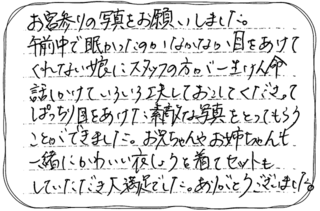 お宮参りの写真をお願いしました。
午前中で眠かったのかなかなか目をあけて
くれない娘にスタッフの方が一生けん命
話しかけていろいろ工夫しておこしてくださって
ぱっちり目をあけた素敵な写真をとってもらう
ことができました。お兄ちゃんやお姉ちゃんも
一緒にかわいい衣しょうを着てセットも
していただき大満足でした。ありがとうございました。